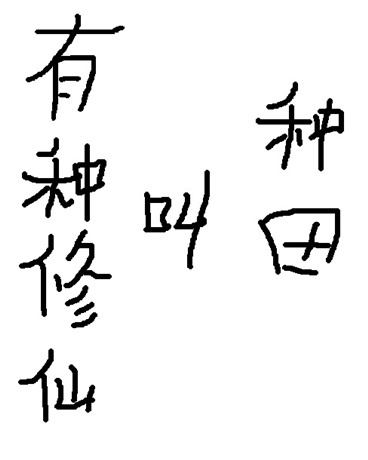 有种修仙
叫
种田